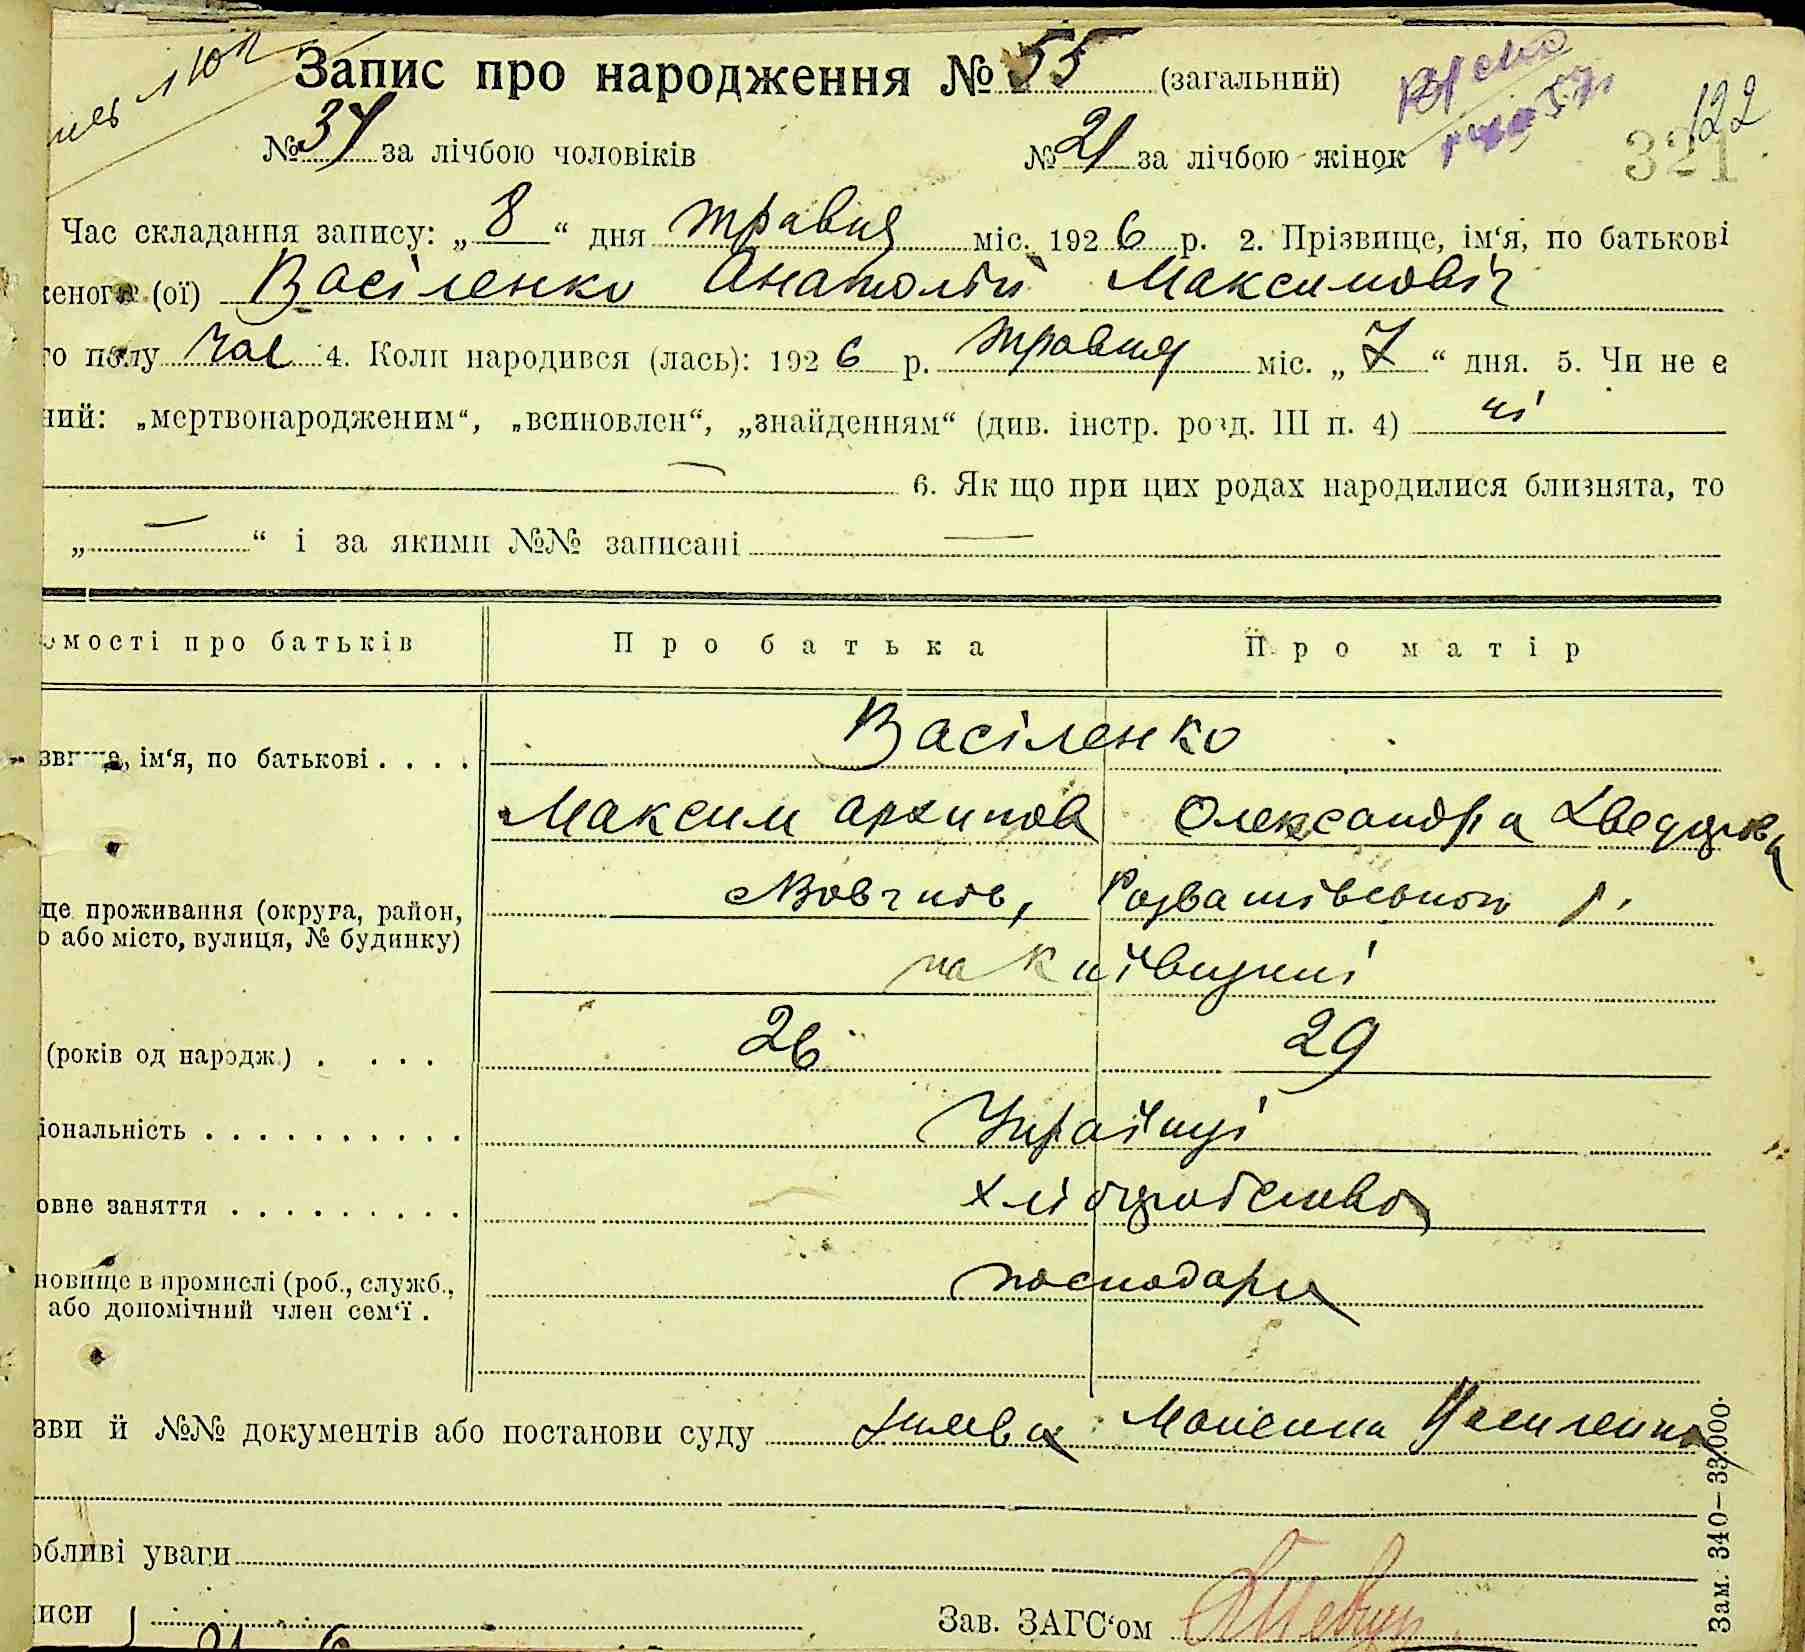 Запис про народження № 55 (загальний)
122
321
№ 34 за лічбою чоловіків № 21 за лічбою жінок
Час складання запису: „ 8 “ дня травня міс. 192 6 р. 2. Прізвище, ім‘я, по батькові
женого (ої) Василенко Анатолій Максимовіч
го полу чол 4. Коли народився (лась): 192 6 р. травня міс. „ 7 “ дня. 5. Чи не є
ний: „мертвонародженим“, „всиновлен“, „знайденням“ (див. інстр. розд. III п. 4) ні
— 6. Як що при цих родах народилися близнята, то
„ — “ і за якими №№ записані —
омості про батьків Про батька Про матір
Васіленко
звище, ім‘я, по батькові . . . .
Максим Архипов Олександра
це проживання (округа, район, Вовчків, Розважівського р.
о або місто, вулиця, № будинку)
на Київщині
(років од народж.) . . . . 26 29
іональність . . . . . . . . . . . Українці
овне заняття . . . . . . . . . . хліборобство
новище в промислі (роб., служб., господарі
або допоміжний член сем‘ї .
зви й №№ документів або постанови суду заява Максима Василенка
обливі уваги
иси Зав. ЗАГС‘ом
Зам. 340–33.000.